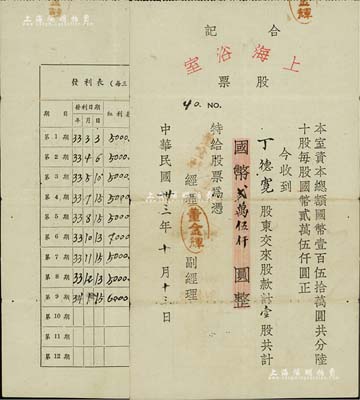 合記
上海浴室
股票
NO. 40
本室資本總額國幣壹百伍拾萬圓共分陸
十股每股國幣貳萬伍仟圓正
今收到
丁德寬 股東交來股款計壹股共計
國幣貳萬伍仟圓整
特給股票爲憑
經理 董金輝 副經理
中華民國卅三年十月十三日
發利表
期目 發利日期 紅利
年 月 日
第1期 33 3 3 5000
第2期 33 4 6 5000
第3期 33 5 10 5000
第4期 33 7 13 5000
第5期 33 8 15 5000
第6期 33 10 13 7000
第7期 33 11 13 5000
第8期 33 12 13 5000
第9期 34 15 6000
第10期
第11期
第12期
上海陽明拍賣